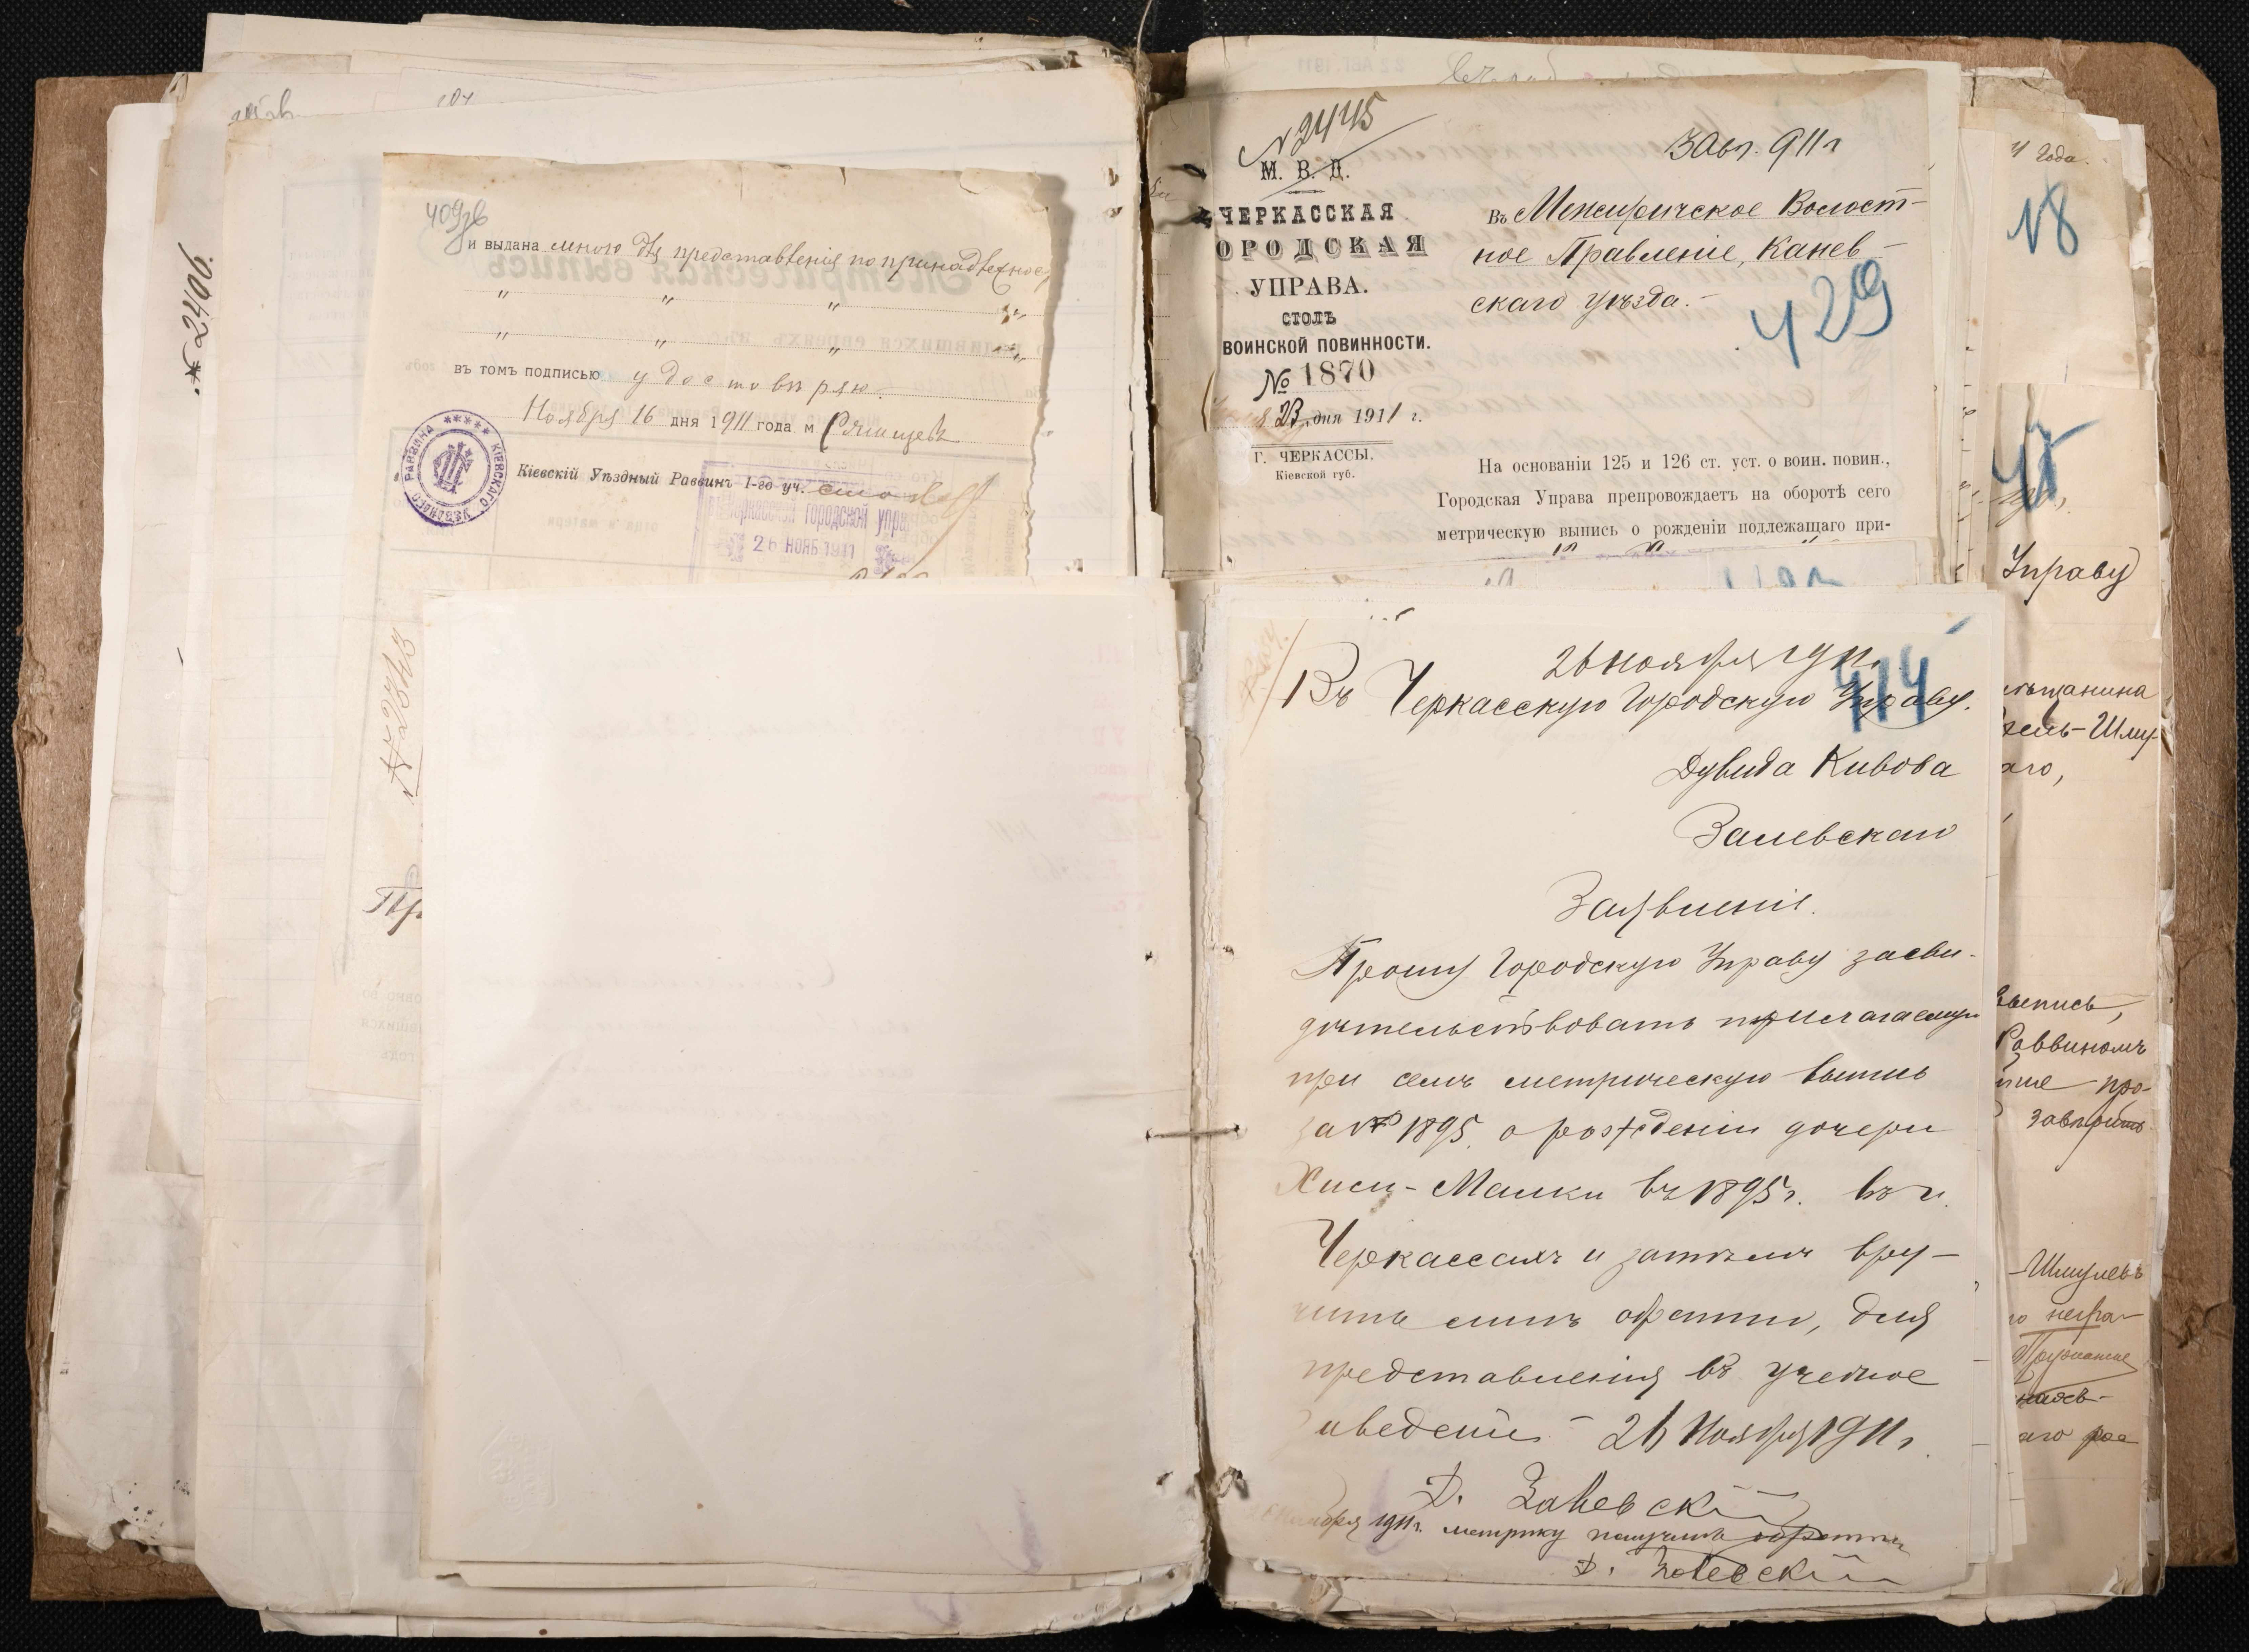 409зв
и выдана мною для представленія по принадлежнос,
въ томъ подписью удостовѣряю.
Ноября 16 дня 1911 года м. Ржищевъ
Кіевскій Уѣздный Раввинъ 1-го уч.
РАВВИНА КІЕВСКАГО УѢЗДНАГО
Черкасской городской упра
26 НОЯБ 1911
№ 2406
№ 2343
Пр
№ 2445
М. В. Д.
ЧЕРКАССКАЯ
ОРОДСКАЯ
УПРАВА.
СТОЛЪ
ВОИНСКОЙ ПОВИННОСТИ.
№ 1870
23 дня 1911 г.
Г. ЧЕРКАССЫ.
Кіевской губ.
3 Авг. 911 г
Въ Межиричское Волост-
ное Правленіе, Канев-
скаго уѣзда.
429
На основаніи 125 и 126 ст. уст. о воин. повин.,
Городская Управа препровождаетъ на оборотѣ сего
метрическую выпись о рожденіи подлежащаго при-
26 ноября 1911 г.
414
Въ Черкасскую Городскую Управу.
Дувида Кивова
Залевскаго
Заявленіе.
Прошу Городскую Управу засви-
дѣтельствовать прилагаемую
при семъ метрическую выпись
за № 1895 о рожденіи дочери
Хиси-Малки въ 1895 г. въ г.
Черкассахъ и затѣмъ вру-
чить мнѣ обратно, для
представленія въ учебное
заведеніе. 26 Ноября 1911 г.
Д. Залевскій
26 Ноября 1911 г. метрику получилъ обратно
Д. Залевскій
1 Года.
18
Управу
ѣщанина
Шму-
аго,
Выпись,
Раввиномъ
про-
завѣрить
-Шмулевъ
аго